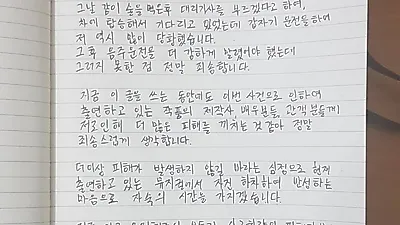 그날 같이 술을 먹은후 대리기사를 부르겠다고 하여,
차에 탑승해서 기다리고 있었는데 갑자기 운전을하여
저 역시 많이 당황했습니다.
그후 음주운전을 더 강하게 말렸어야 했는데
그러지 못한 점 정말 죄송합니다.
지금 이 글을 쓰는 동안에도 이번 사건으로 인하여
출연하고 있는 작품의 제작사 배우분들, 관객분들께
저로인해 더 많은 피해를 끼치는 것 같아 정말
죄송스럽게 생각합니다.
더이상 피해가 발생하지 않길 바라는 심정으로 현재
출연하고 있는 뮤지컬에서 자진 하차하여 반성하는
마음으로 자숙의 시간을 가지겠습니다.